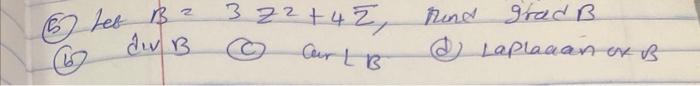 (5) Let B = 3 z² + 4 z̄, Find grad B
(b) div B (c) Curl B (d) Laplacian of B